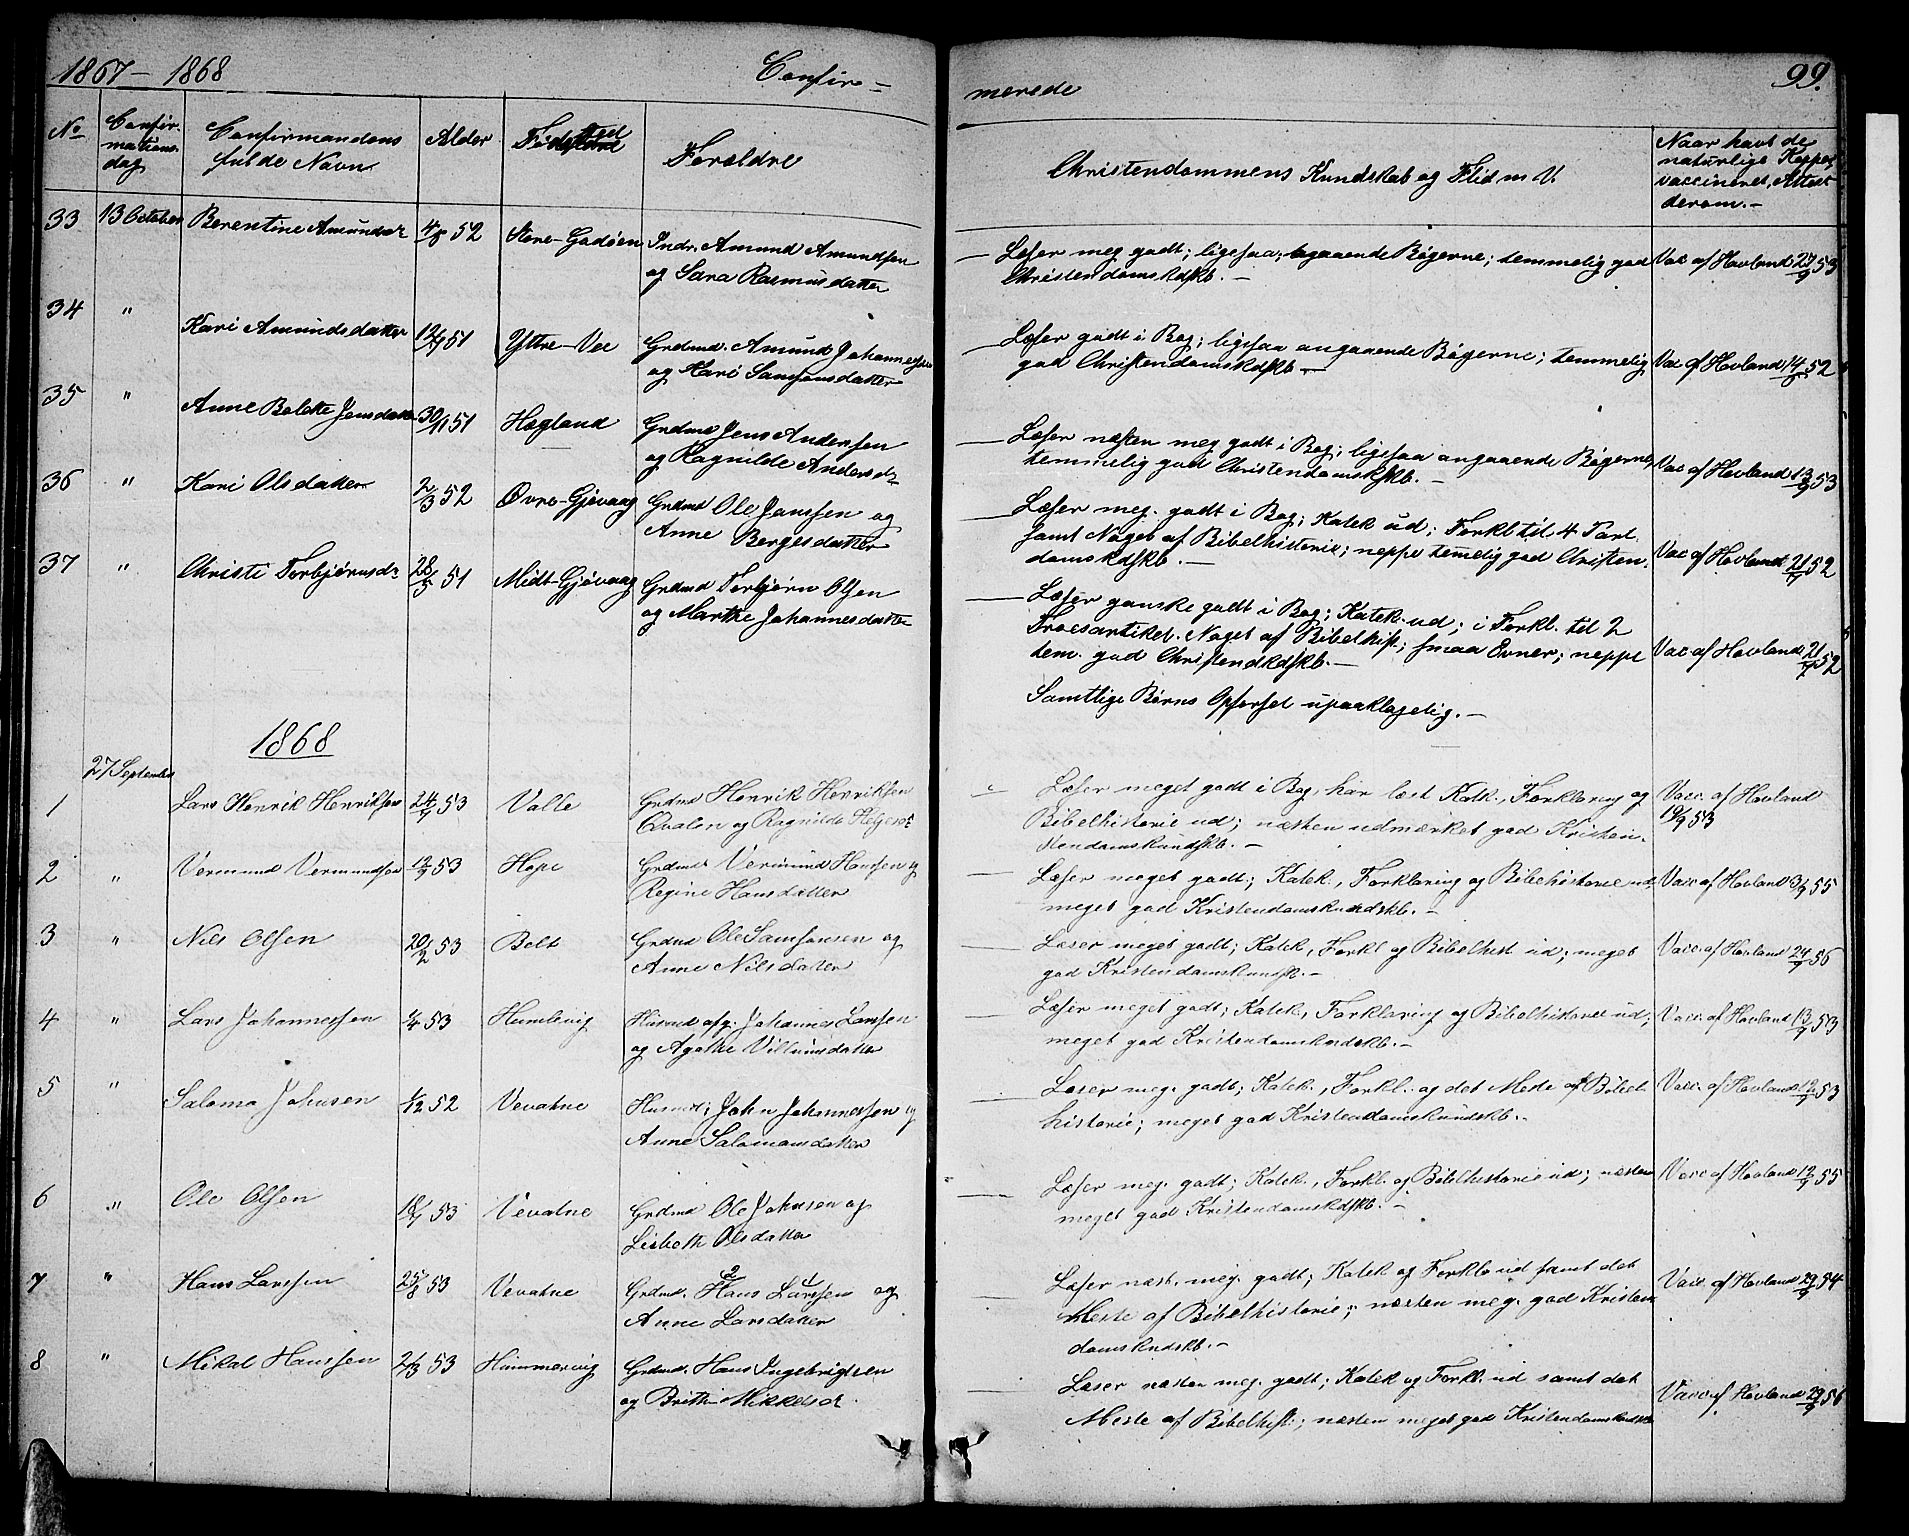 1867 – 1868
Confir-
merede
99.
No
Confir-
mations-
dag
Confirmandens
fulde Navn
Alder
Fødested
Forældre
Christendommens Kundskab og Flid m. V.
Naar havt de
naturlige Kopper,
vaccineret, Attest
derom.-
33 13 October Berentine Amundsdr 4/8 52 Store-Gadøen Indr. Amund Amundsen
og Sara Rasmusdatter
Læser meg godt; ligesaa angaaende Bøgerne; temmelig god
Christendomskdskb. -
Vac af Hovland 27/9 53
34 " Kari Amundsdatter 12/11 51 Yttre-Vee Grdmd. Amund Johannessen
og Kari Samsonsdatter
Læser godt i Bog; ligesaa angaaende Bøgerne; temmelig
god Christendomskdskb. -
Vac af Hovland 14/9 52
35 " Anne Bolette Jensdatter 30/11 51 Hogland Grdmd Jens Andersen
og Ragnilde Andersdr
Læser næsten meg godt i Bog; ligesaa angaaende Bøgerne;
temmelig god Christendomskdskb. -
Vac af Hovland 13/9 53
36 " Kari Olsdatter 2/3 52 Øvre-Gjøvaag Grdmd Ole Janssen og
Anne Bergesdatter
Læser meg. godt i Bog; Katek ud; Forkl til 4 Part
samt Noget af Bibelhistorie; neppe temelig god Christen-
domskdskb. -
Vac af Hovland 21/7 52
37 " Christi Torbjørnsdr 28/5 51 Midt-Gjøvaag Grdmd Torbjørn Olsen
og Marthe Johannesdatter
Læser ganske godt i Bog; Katek. ud; i Forkl. til 2
Troesartikel. Noget af Bibelhist.; smaa Evner; neppe
tem. god Christendkdskb. -
Vac af Hovland 21/7 52
Samtlige Børns Opførsel upaaklagelig. -
1868
27 September
1 Lars Henrik Henriksen 24/7 53 Valle Grdmd Henrik Henriksen
Qvalen og Ragnilde Helgesdr
Læser meget godt i Bog, har læst Katk., Forklaring og
Bibelhistorie ud; næsten udmærket god Kristen-
domskundskb. -
Vacc. af Hovland
19/9 53
2 " Vermund Vermundsen 12/9 53 Hope Grdmd Vermund Hansen og
Regine Hansdatter
Læser meget godt; Katek., Forklaring og Bibelhistorie ud,
meget god Kristendomskundskb. -
Vacc. af Hovland 3/9 55
3 " Nils Olsen 20/2 53 Bolt Grdmd Ole Samsonsen og
Anne Nilsdatter
Læser meget godt; Katek, Forkl og Bibelhist ud; meget
god Kristendomskundsk. -
Vacc. af Hovland 24/9 56
4 " Lars Johannessen 1/4 53 Humlevig Husmd afg. Johannes Larssen
og Agathe Villumsdatter
Læser meget godt; Katek, Forklaring og Bibelhistorie ud;
meget god Kristendomskndskb. -
Vacc. af Hovland 13/9 53
5 " Salomo Johnsen 1/12 52 Vevatne Husmd; John Johannessen og
Anne Salomonsdatter
Læser meg. godt; Katek., Forkl. og det Meste af Bibel-
historie; meget god Kristendomskundskb. -
Vacc. af Hovland 12/9 53
6 " Ole Olsen 18/7 53 Vevatne Grdmd Ole Johnsen og
Lisbeth Olsdatter
Læser meg. godt; Katek., Forkl. og Bibelhistorie ud; næsten
meget god Kristendomskdskb. -
Vacc af Hovland 12/9 55
7 " Hans Larssen 25/8 53 Vevatne Grdmd. Hans Larssen og
Anne Larsdatter
Læser næst. meg. godt; Katek og Forkl ud samt det
Meste af Bibelhistorie; næsten meg. god Kristen
domskndskb. -
Vacc. af Hovland 29/9 54
8 " Mikal Hanssen 21/3 53 Hummervig Grdmd. Hans Ingebrigtsen
og Brithe Mikkelsdr
Læser næsten meg. godt; Katek og Forkl. ud samt det
Meste af Bibelhist.; næsten meget god Kristendomskndskb
Vacc af Hovland 29/9 56